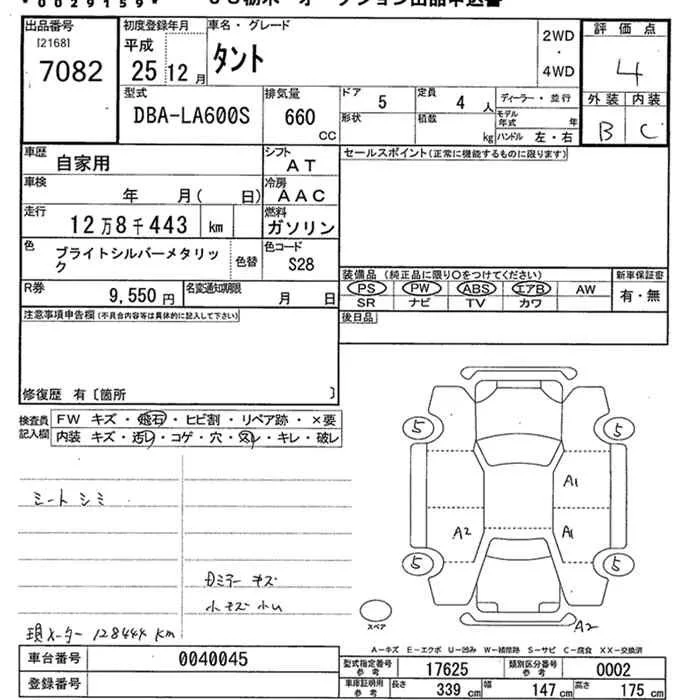 *0029159* ＵＳ栃木 オークション出品申込書
出品番号
[2168]
7082
初度登録年月
平成
25 12月
車名・グレード
タント
2WD
・
4WD
評価点
4
外装 内装
B C
型式
DBA-LA600S
排気量
660
CC
ドア 5
形状
定員 4 人
積数 kg
ディーラー・並行
モデル年式 年
ハンドル 左・右
車歴 自家用
シフト AT
車検 年 月( 日)
冷房 AAC
走行 12万8千443 km
燃料 ガソリン
色 ブライトシルバーメタリック
色替
色コード S28
R券 9,550円
名変通知期限 月 日
セールスポイント(正常に機能するものに限ります)
装備品 (純正品に限り○をつけてください)
PS PW ABS エアB AW
SR ナビ TV カワ
新車保証書
有・無
後日品
注意事項申告欄(不具合内容等は具体的に記入して下さい)
修復歴 有〔箇所 〕
検査員記入欄
FW キズ・飛石・ヒビ割・リペア跡・×要
内装 キズ・汚レ・コゲ・穴・スレ・キレ・破レ
シートシミ
Dミラーキズ
小キズ小U
現メーター 128444 km
5 5
A1
A2 A1
5 5
スペア
A2
A－キズ E－エクボ U－凹み W－補修跡 S－サビ C－腐食 XX－交換済
車台番号 0040045
登録番号
型式指定番号参考 17625
類別区分番号参考 0002
車庫証明用参考 長さ 339 cm 幅 147 cm 高さ 175 cm